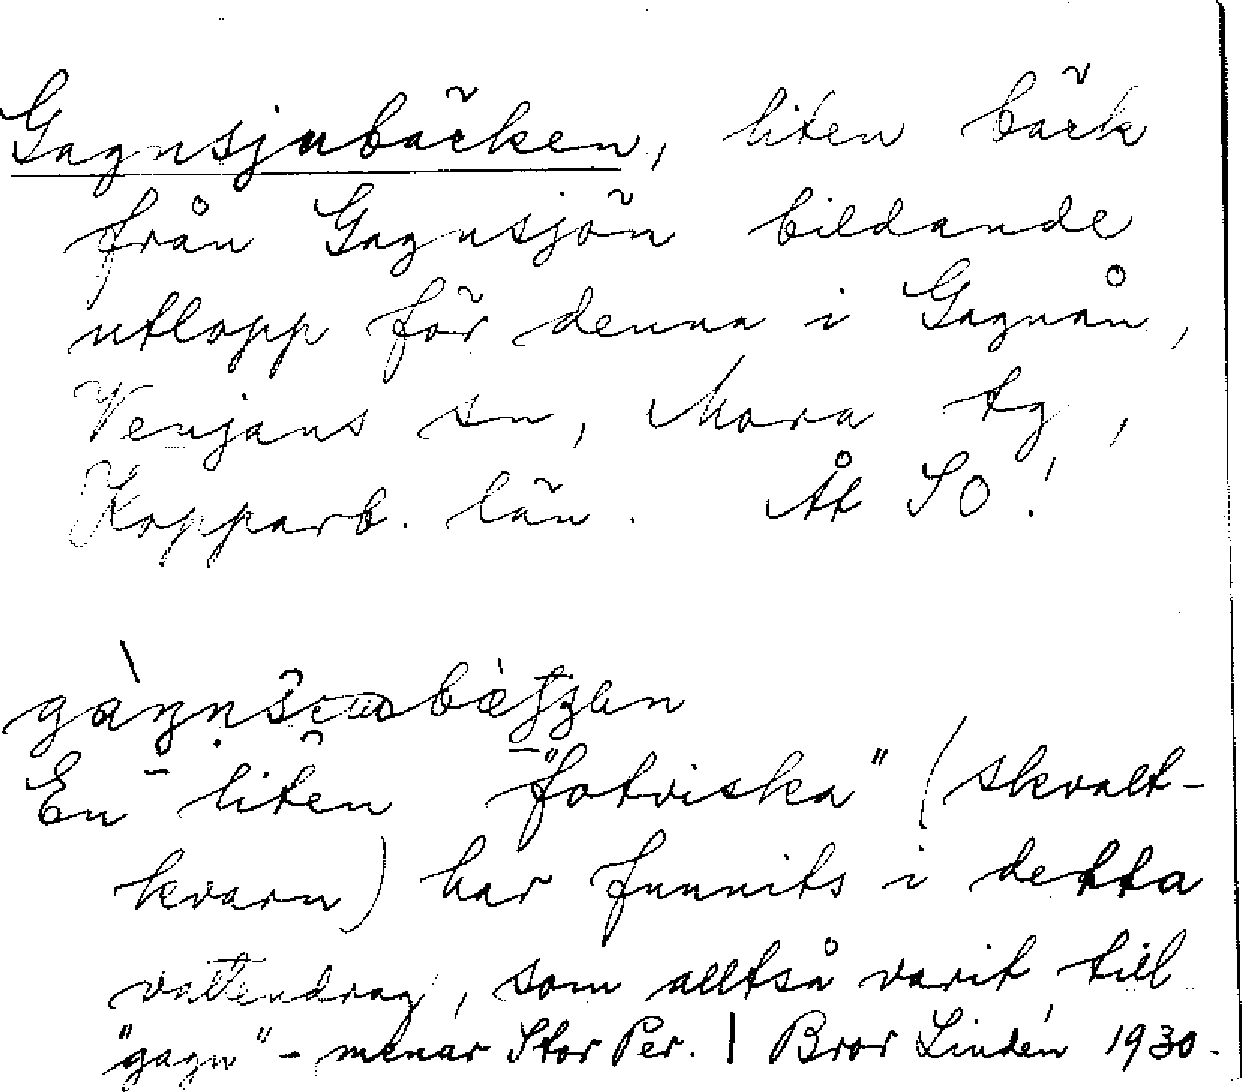 Gagnsjubäcken, liten bäck
från Gagnsjön bildande
utlopp för denna i Gagnån,
Venjans sn, Mora tg,
Kopparb. län. Åt SO!
En liten "fotviska" (skvalt-
kvarn) har funnits i detta
vattendrag, som alltså varit till
"gagn" - menar Stor Per. | Bror Lindén 1930.